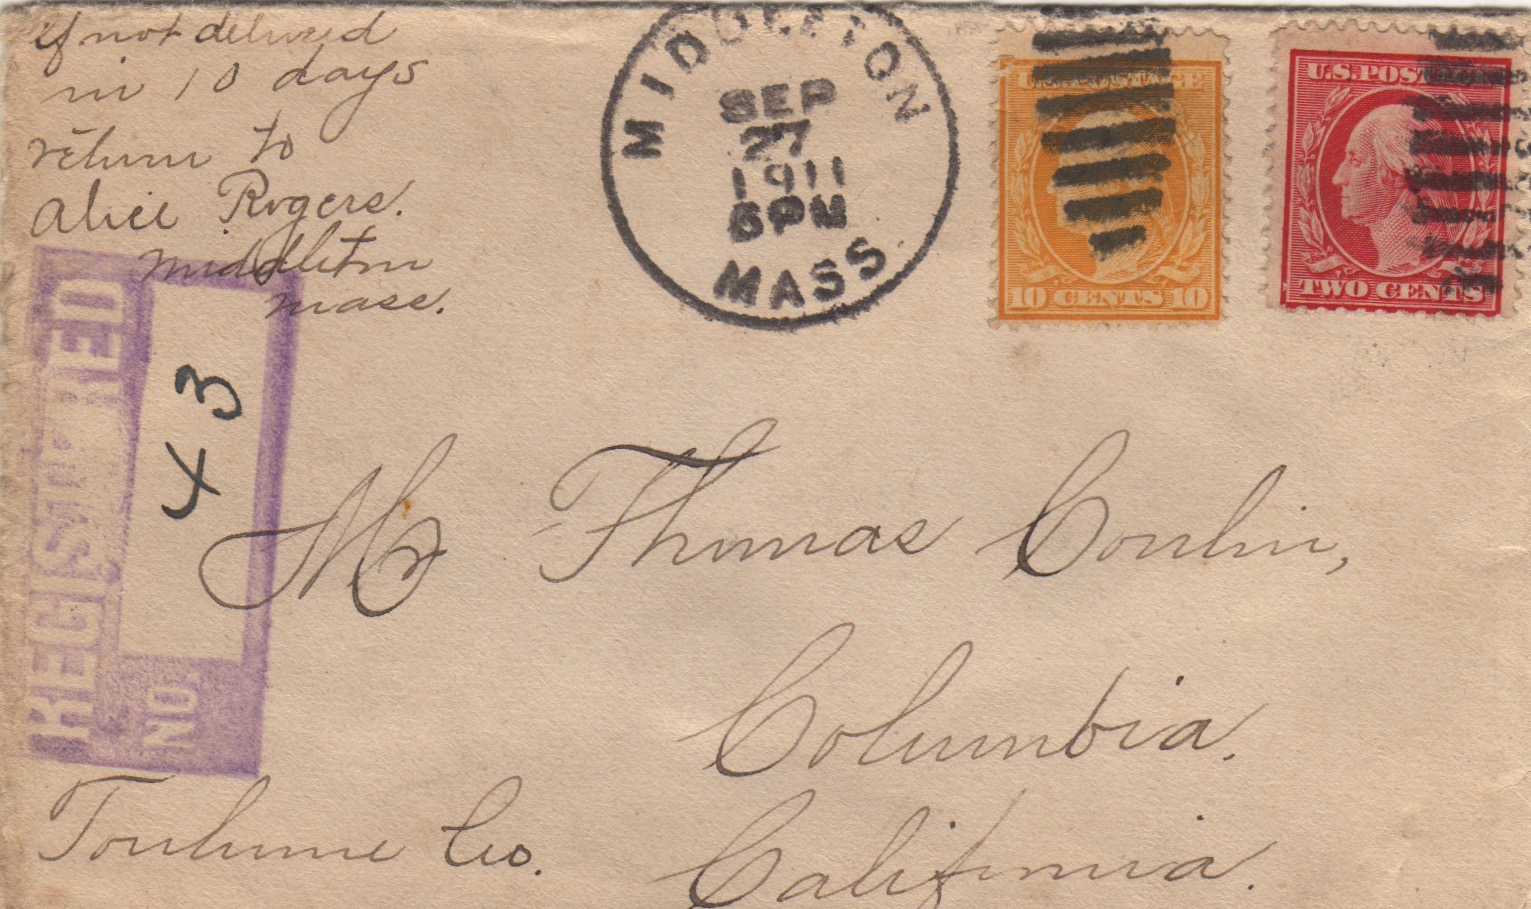 if not delivered
in 10 days
return to
Alice Rogers.
Middleton
Mass.
MIDDLETON
SEP
27
1911
6PM
MASS
U.S. POSTAGE
10 CENTS 10
U.S. POSTAGE
TWO CENTS
REGISTERED
NO.
43
Mr Thomas Conlin,
Columbia.
Toulume Co.
California.